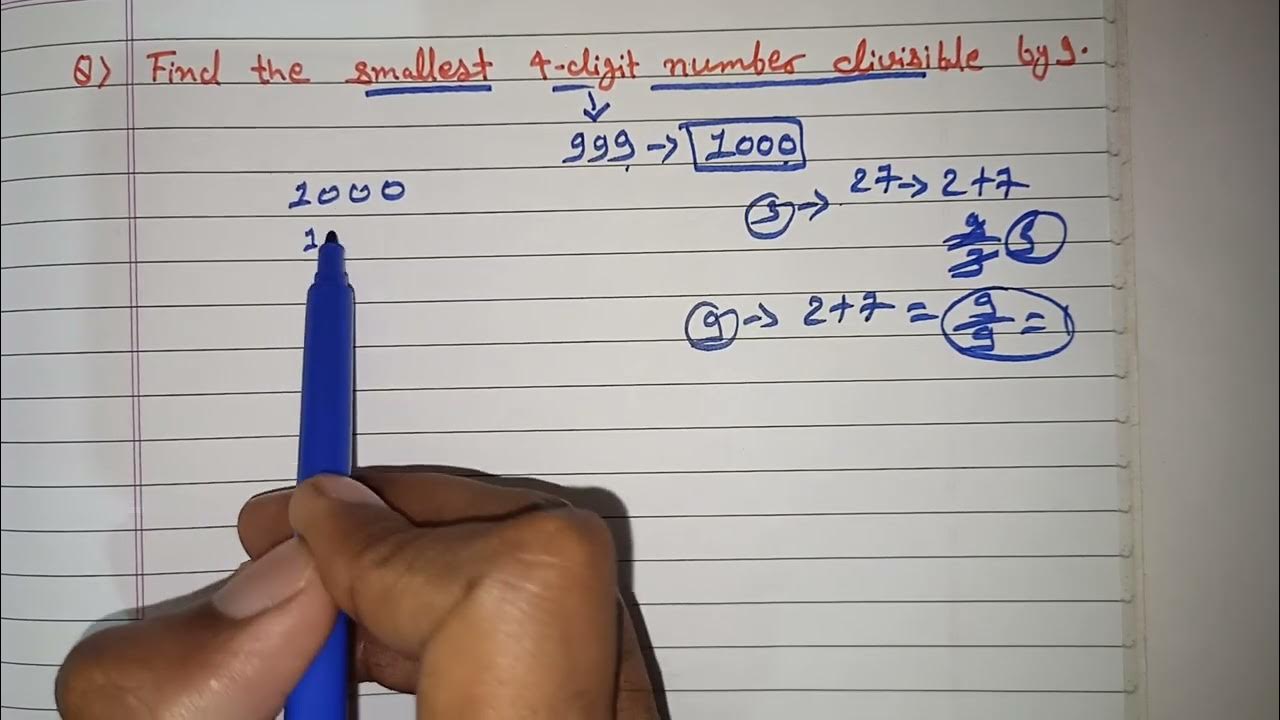 Q) Find the smallest 4-digit number divisible by 9.
999 → 1000
1000
1
3 → 27 → 2+7
9/3 3
9 → 2+7 = 9/9 = 1